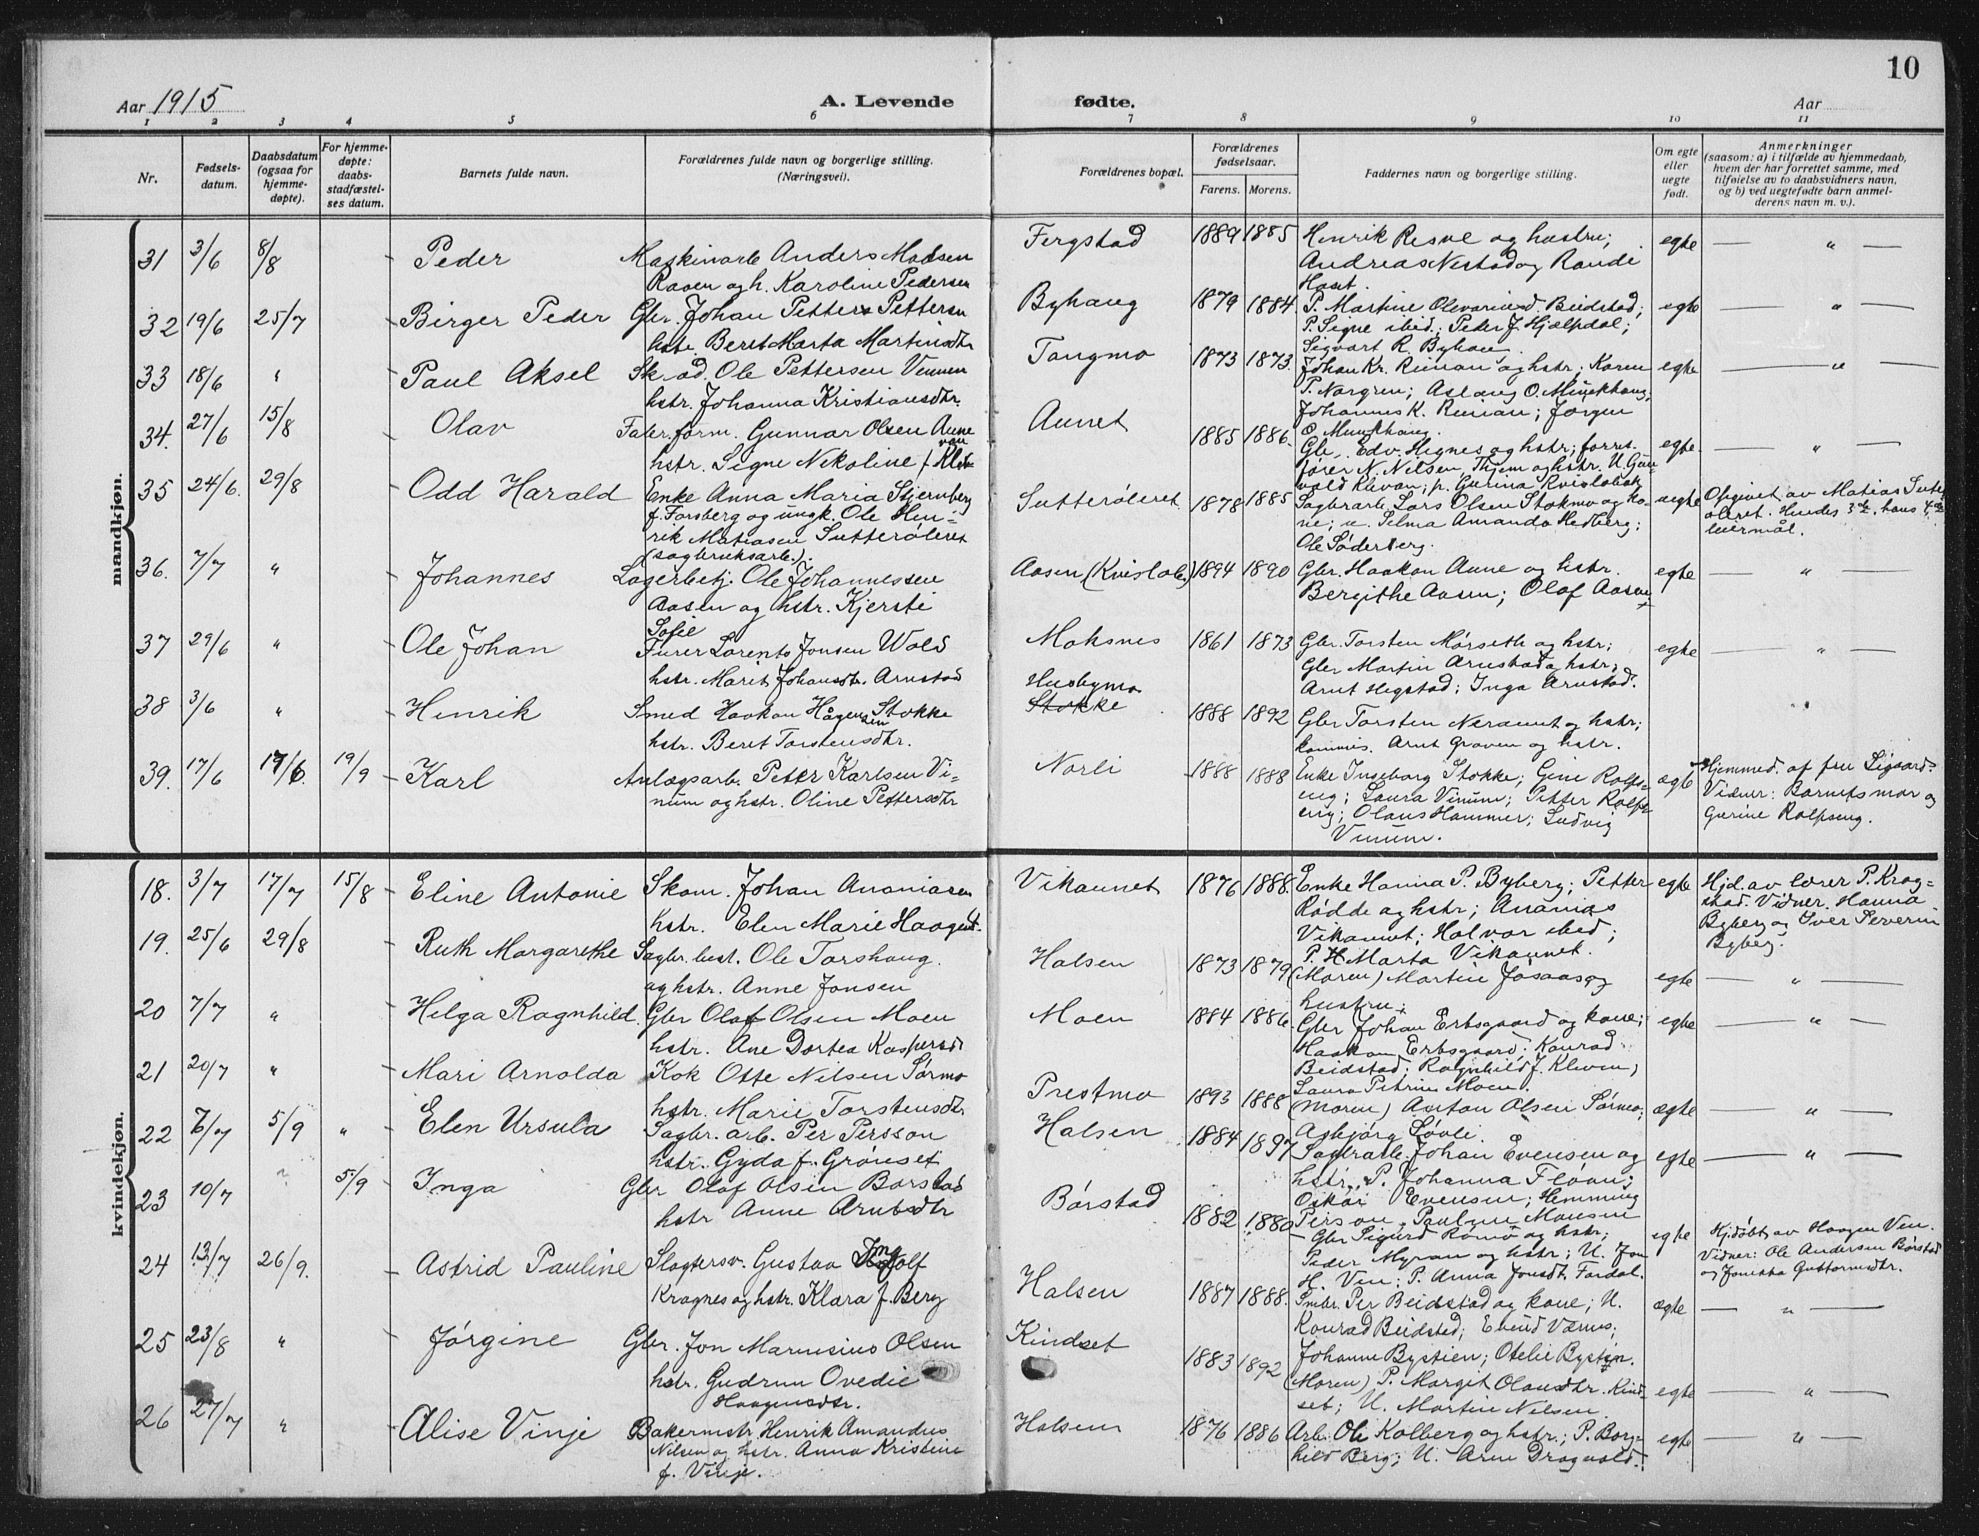 10
Aar 1915
A. Levende fødte.
Aar
1 2 3 4 5 6 7 8 9 10 11
Nr.
Fødsels-
datum.
Daabsdatum
(ogsaa for
hjemme-
døpte).
For hjemme-
døpte:
daabs-
stadfæstel-
ses datum.
Barnets fulde navn.
Forældrenes fulde navn og borgerlige stilling.
(Næringsvei).
Forældrenes bopæl.
Forældrenes
fødselsaar.
Farens. Morens.
Faddernes navn og borgerlige stilling.
Om egte
eller
uegte
født.
Anmerkninger
(saasom: a) i tilfælde av hjemmedaab,
hvem der har forrettet samme, med
tilføielse av to daabsvidners navn,
og b) ved uegtefødte barn anmel-
derens navn m. v.).
mandkjøn.
31 3/6 8/8 Peder
Maskinarb Anders Madsen
Raaen og h. Karoline Pedersen
Fergstad 1889 1885
Henrik Resve og hustru;
Andreas Nestad og Randi
Haset.
egte — " —
32 19/6 25/7 Birger Peder
Gbr. Johan Petter Pettersen
hstr Beret Marta Martinsdtr
Byhaug 1879 1884
P. Martine Olevarius d. Beidstad;
P. Signe ibid.; Peder J. Hjælpdal;
Sigvart R. Byhaug.
egte — " —
33 18/6 " Paul Aksel
Ole Pettersen Vennen
hstr. Johanna Kristiansdtr.
Tangmo 1873 1873
Johan Kr. Renaan og hstr; Karen
P. Norgren; Aslaug O. Munkhaug;
Johannes K. Renaan; Jørgen
O. Munkhaug.
egte — " —
34. 27/6 15/8 Olav
Gunnar Olsen Aune
hstr. Signe Nikoline f. Klevan
Aunet 1885 1886
Gbr. Edv. Hegnes og hstr; forret.
fører N. Nilsen Thjem og hstr. U. Gun
vald Klevan; p. Gurina Kvislabak
egte — " —
35 24/6. 29/8 Odd Harald
Enke Anna Maria Stjernberg
f. Forsberg og ungk. Ole Hen-
rik Matiasen Sutterøleret
(sagbruksarb.).
Sutterøleret 1878 1885
Sagbrarb. Lars Olsen Stokmo og ko-
ne; u. Selma Amanda Hedberg;
Ole Søderberg.
uegte
Opgivet av Matias Sutter
øleret. Hendes 3die, hans 4de
leiermål.
36. 7/7 " Johannes
Lagerbetj. Ole Johannessen
Aasen og hstr. Kjersti
Sofie
Aasen (Kvislab.) 1894 1890
Gbr. Haakon Aune og hstr.
Bergithe Aasen; Olaf Aasen
egte — " —
37 29/6 " Ole Johan
Furer Lorents Jonsen Wold
hstr. Marit Johansdtr. Arnstad
Moksnes 1861 1873
Gbr. Torsten Mørseth og hstr;
Gbr Martin Arnstad og hstr;
Arnt Hegstad; Inga Arnstad.
egte — " —
38 3/6 " Henrik
Smed Haakon Hågensen Stokke
hstr. Beret Torstensdtr.
Husbymo
Stokke 1888 1892
Gbr Torsten Neraunet og hstr;
kommis. Arnt Graven og hstr.
"
39. 17/6 17/6. 19/9 Karl
Anlægsarb. Petter Karlsen Vi-
num og hstr. Oline Pettersdtr
Norli 1888 1888
Enke Ingeborg Stokke; Gine Rolfs-
eng; Laura Vinum; Petter Rolfs-
eng; Olaus Hammer; Ludvig
Vinum.
ægte
Hjemmed. af fru Sigaard.
Vidner: Barnets mor og
Gurine Rolfseng.
kvindekjøn.
18. 3/7 17/7 15/8 Eline Antonie
Skom. Johan Ananiasen
hstr. Elen Marie Haagensdtr.
Vikaunet 1876 1888
Enke Hanna P. Byberg; Petter
Rødde og hstr; Ananias
Vikaunet; Halvor ibid;
P. Marta Vikaunet.
egte
Hjd. av lærer P. Krog-
stad. Vidner. Hanna
Byberg og Iver Severin
Byberg.
19. 25/6 29/8 Ruth Margarethe
Sagbr. best. Ole Torshaug.
og hstr. Anne Jonsen
Halsen 1873 1879
(Moren) Martin Josaas og
hustru
egte — " —
20 7/7 " Helga Ragnhild
Gbr Olaf Olsen Moen
hstr. Ane Dortea Kaspersdtr
Moen 1884 1886
Gbr Johan Ertsgaard og kone;
Haakon Ertsgaard; Konrad
Beidstad; Ragnhild f. Kleven;
Laura Petrine Moen.
egte — " —
21 20/7 " Mari Arnolda
Kok Otte Nilsen Sørmo
hstr. Marie Torstensdtr
Prestmo 1893 1888
(moren) Anton Olsen Sørmo;
Asbjørg Løvli.
ægte — " —
22 6/7 5/9 " Elen Ursula
Sagbr. arb. Per Persson
hstr. Gyda f. Grønset
Halsen 1884 1897
Sagbrarb. Johan Evensen og
hstr. P. Johanna Floan;
Oskar Evensen; Hemming
Persson. Pauline Monsen
egte — " —
23 10/7 " 5/9 Inga
Gbr Olaf Olsen Børstad
hstr Anne Arntsdtr
Børstad 1882 1880
Gbr Sigurd Romo og hstr;
Peder Myran og hstr; U. Jon
H. Ven; P. Anna Jonsdtr. Fordal.
egte
Hjdøbt av Haagen Ven.
Vidner: Ole Andersen Børstad
og Jonetta Guttormsdtr.
24 13/7 26/9. Astrid Pauline
Slagtersv. Gustav Ingolf
Kragnes og hstr. Klara f. Berg
Halsen 1887 1888.
Smbr. Per Beidstad og kone; U.
Konrad Beidstad; Evend Værnes;
Johanne Bystien; Otelie Bystien.
ægte — " —
25 23/8 " Jørgine
Gbr. Jon Marinius Olsen
hstr. Gudrun Ovedie
Haagensdtr.
Kindset 1883 1892
(Moren) P. Margit Olausdtr. Kind-
set; U. Martin Nilsen.
egte — " —
26 27/7 " Alise Vinje
Bakermstr Henrik Amandus
Nilsen og hstr. Anna Kristine
f. Vinje.
Halsen 1876 1886
Arb. Ole Kolberg og hstr.; P. Borg-
hild Berg; U. Arne Dragvold.
egte — " —